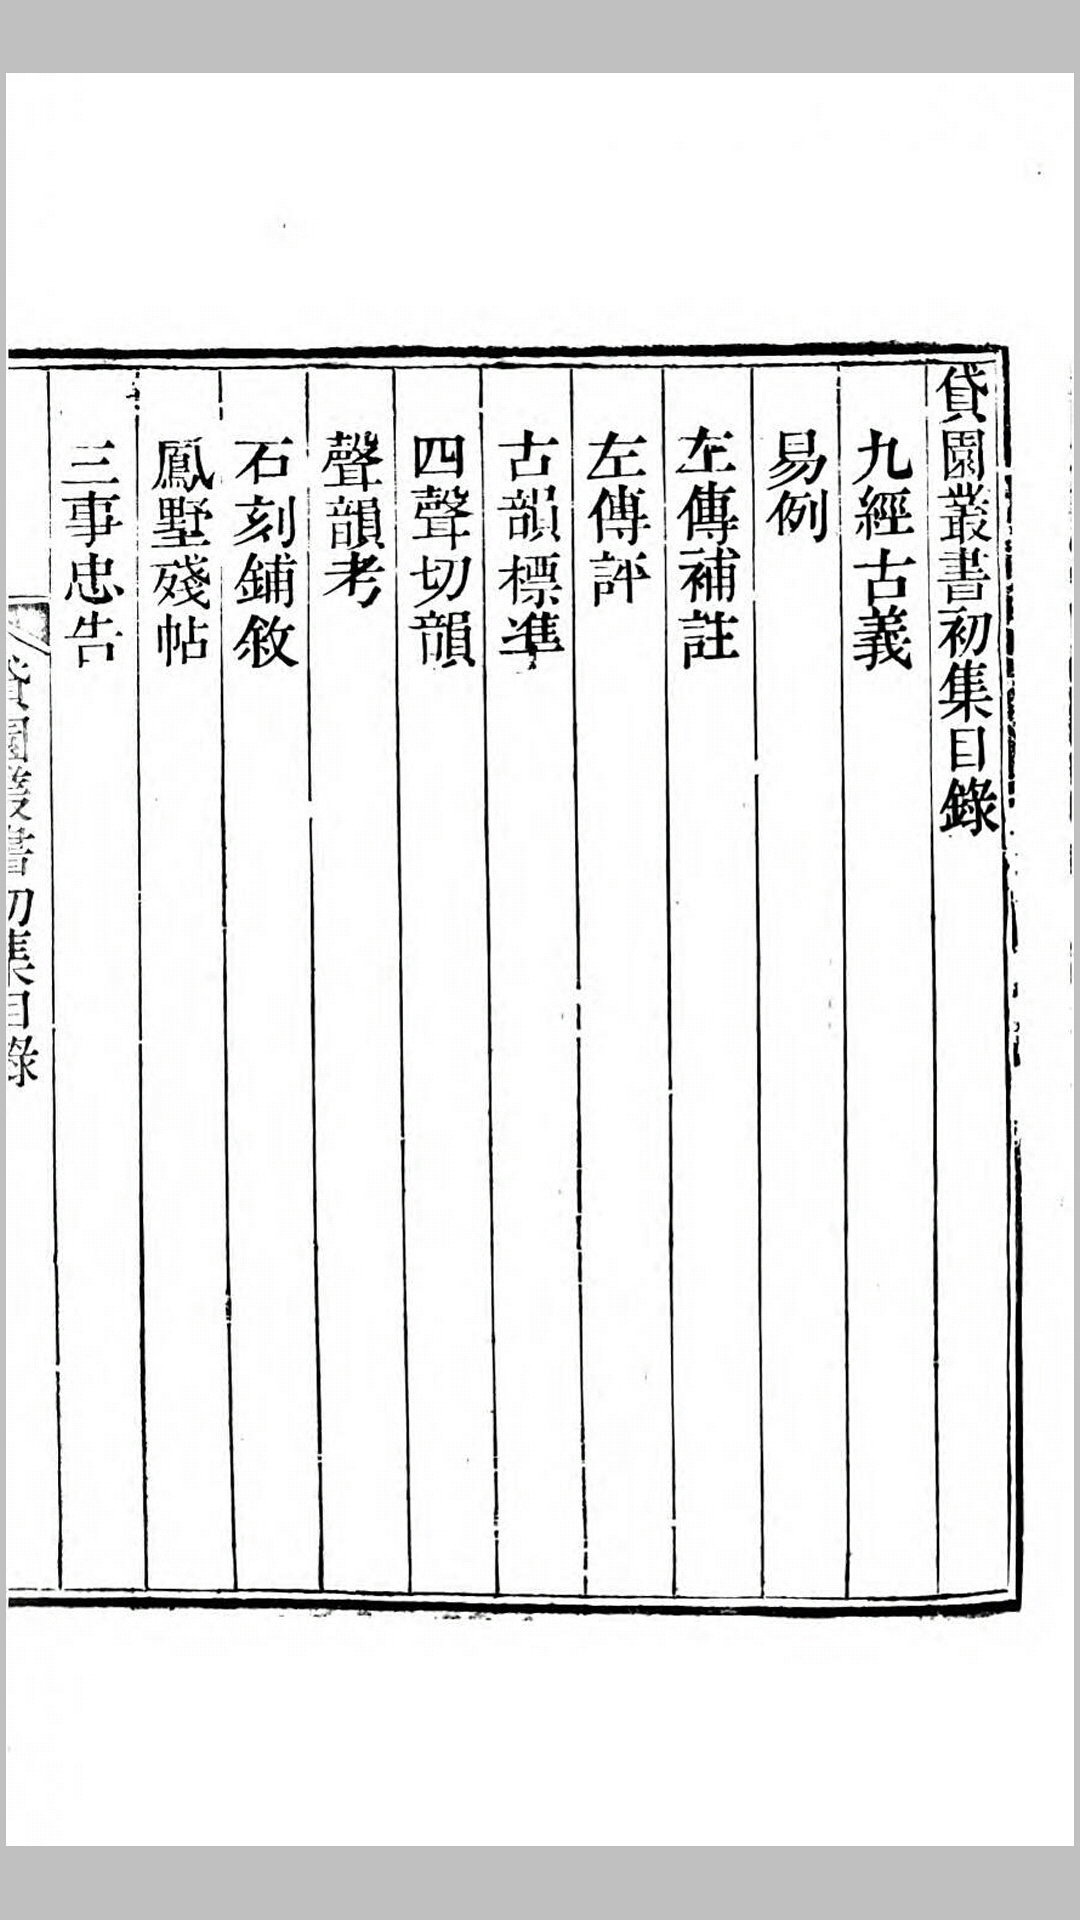 貸園叢書初集目錄
九經古義
易例
左傳補註
左傳評
古韻標準
四聲切韻
聲韻考
石刻鋪敘
鳳墅殘帖
三事忠告
貸園叢書初集目錄